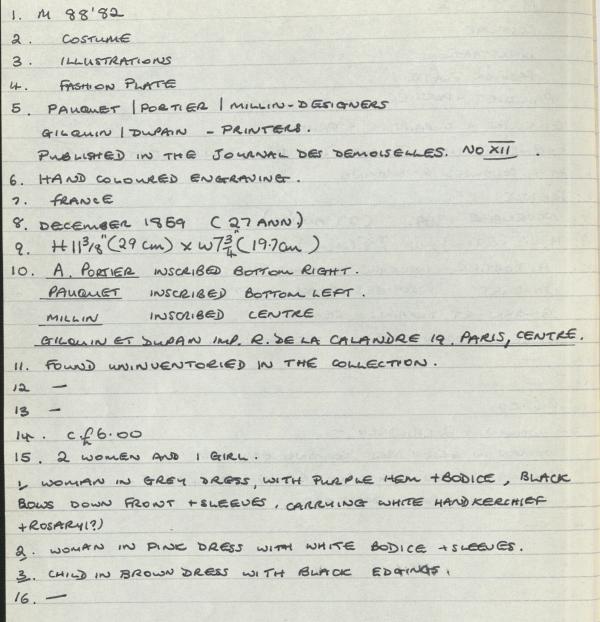 1. M 88'82
2. COSTUME
3. ILLUSTRATIONS
4. FASHION PLATE
5. PAUQUET | PORTIER | MILLIN - DESIGNERS
GILQUIN | DUPAIN - PRINTERS.
PUBLISHED IN THE JOURNAL DES DEMOISELLES. NO XII.
6. HAND COLOURED ENGRAVING.
7. FRANCE
8. DECEMBER 1859 (27 ANN)
9. H 11 3/8" (29 cm) x W 7 3/4" (19.7cm)
10. A. PORTIER INSCRIBED BOTTOM RIGHT.
PAUQUET INSCRIBED BOTTOM LEFT.
MILLIN INSCRIBED CENTRE
GILQUIN ET DUPAIN IMP. R. DE LA CALANDRE 19. PARIS, CENTRE.
11. FOUND UNINVENTORIED IN THE COLLECTION.
12 —
13 —
14. c.£6.00
15. 2 WOMEN AND 1 GIRL.
1. WOMAN IN GREY DRESS, WITH PURPLE HEM + BODICE, BLACK
BOWS DOWN FRONT + SLEEVES, CARRYING WHITE HANDKERCHIEF
+ ROSARY(?)
2. WOMAN IN PINK DRESS WITH WHITE BODICE + SLEEVES.
3. CHILD IN BROWN DRESS WITH BLACK EDGINGS.
16. —